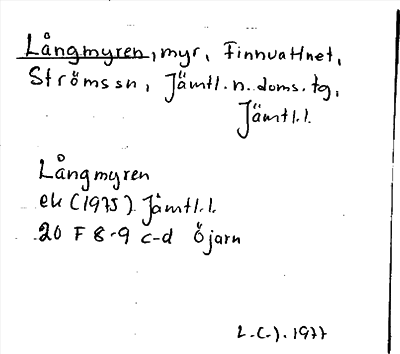 Långmyren, myr, Finnvattnet,
Strömssn, Jämtl. n. doms. tg,
Jämtl.l.
Långmyren
ek (1975) Jämtl.l.
20 F 8-9 c-d Öjarn
L.C.J. 1977